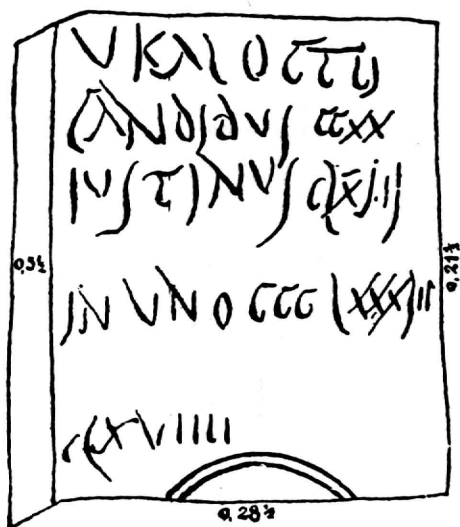 V KAL
CANDIDUS CCXX
IUSTINUS CLXIII
IN UNO CCC LXXXIII
CLXVIIII
0,5½
0,21½
0,28½